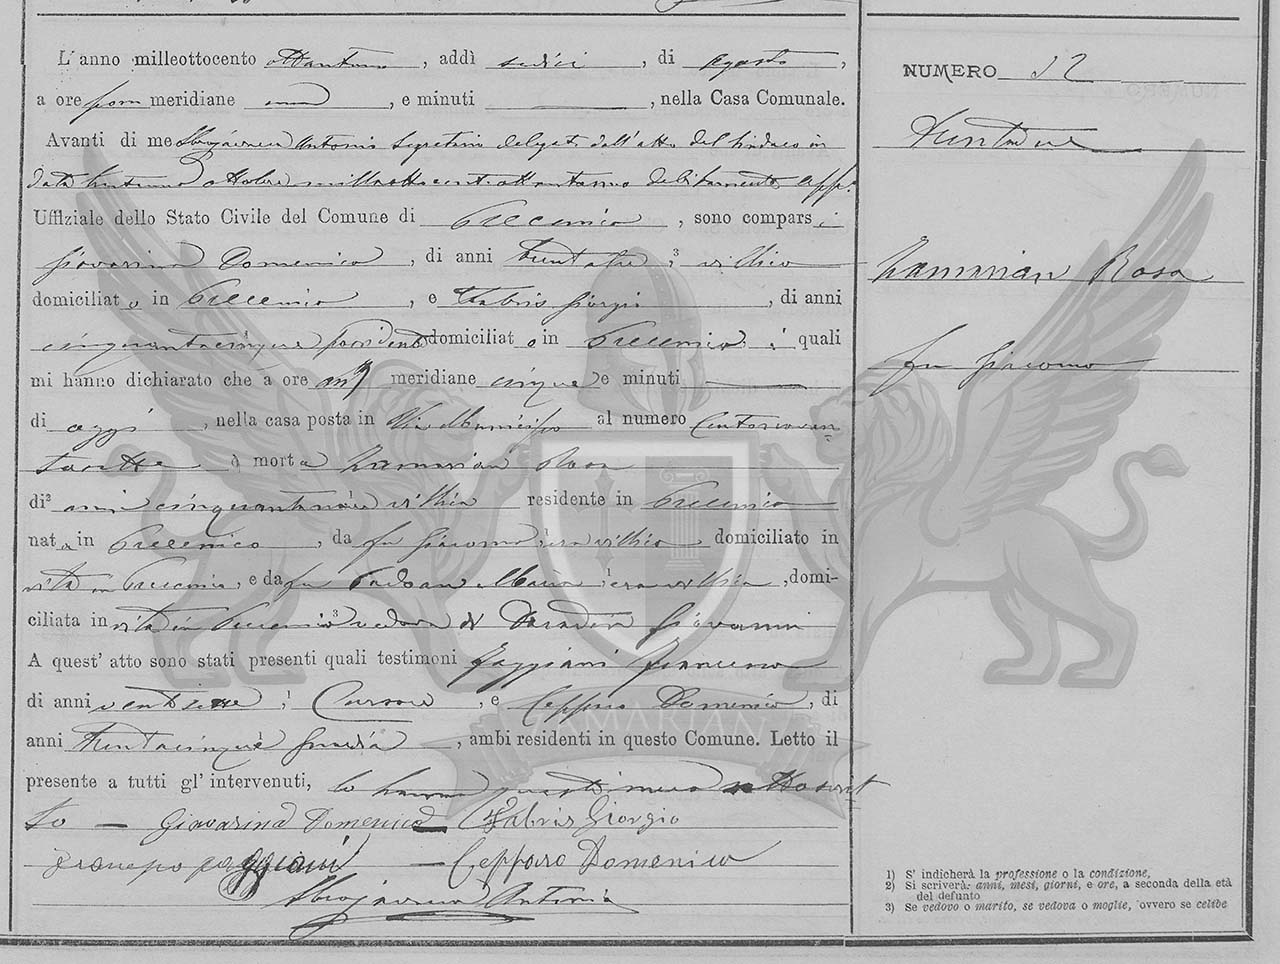 L'anno milleottocento ottantuno, addì sedici, di Agosto,
a ore pom meridiane una, e minuti , nella Casa Comunale.
Avanti di me Antonio Segretario delegato dall'atto del Sindaco in
data ottobre milleottocento debitamente app.
Uffiziale dello Stato Civile del Comune di Precenico, sono compars i
Giavarina Domenico, di anni trentatre, 3 villico
domiciliat o in Precenico, e Fabris Giorgio, di anni
cinquantacinque possidente domiciliat o in Precenico, i quali
mi hanno dichiarato che a ore ant meridiane cinque e minuti
di oggi, nella casa posta in Via Municipio al numero Centonovan
tasette è mort a Zamarian Rosa
di² anni villica residente in Precenico
nat a in Precenico, da fu Giacomo era villico domiciliato in
vita in Precenico, e da fu Padoan Maria era villica, domi-
ciliata in vita in Precenico 3 vedova di Giovanni
A quest' atto sono stati presenti quali testimoni Poggiani Francesco
di anni ventisette, Cursore, e Ceppuro Domenico, di
anni trentacinque Guardia, ambi residenti in questo Comune. Letto il
presente a tutti gl' intervenuti, lo hanno questi meco sottoscrit
to — Giavarina Domenico — Fabris Giorgio
— Cepparo Domenico
Antonio
NUMERO 32
Zamarian Rosa
fu Giacomo
1) S' indicherà la professione o la condizione,
2) Si scriverà: anni, mesi, giorni, e ore, a seconda della età
del defunto
3) Se vedovo o marito, se vedova o moglie, ovvero se celibe
ZAMARIAN